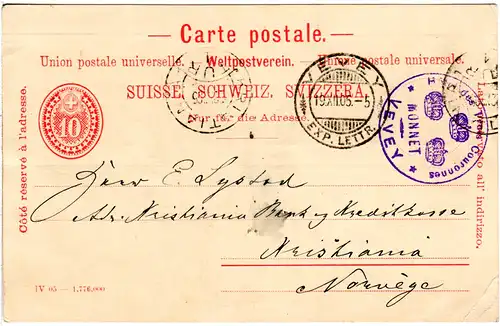 Carte postale.
Union postale universelle. Weltpostverein. Unione postale universale.
SUISSE. SCHWEIZ. SVIZZERA.
Nur für die Adresse.
Côté réservé à l'adresse.
Lato riservato all'indirizzo.
10
VEVEY
19.XII.05.-5
EXP. LETTR.
Trois Couronnes
MONNET
VEVEY
Herr E. Lystad
Adr. Kristiania Bank og Kreditkasse
Kristiania
Norvège
IV 05 — 1,776,000